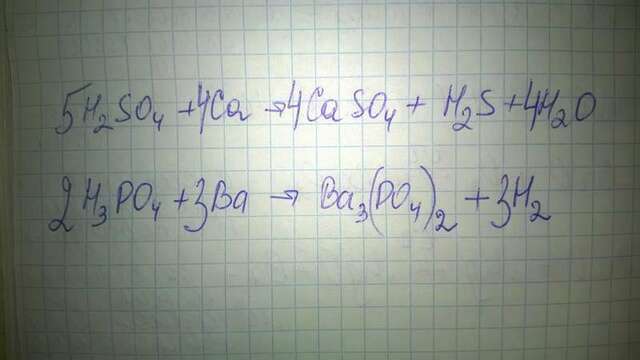 5H₂SO₄ + 4Ca → 4CaSO₄ + H₂S + 4H₂O
2H₃PO₄ + 3Ba → Ba₃(PO₄)₂ + 3H₂